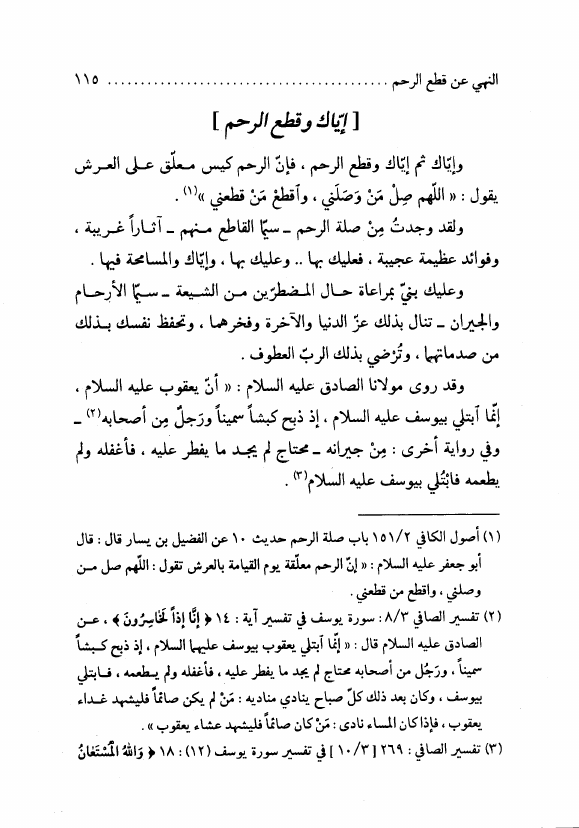 النهي عن قطع الرحم ........................................ ١١٥
[ إيّاك وقطع الرحم ]
وإيّاك ثم إيّاك وقطع الرحم ، فإنّ الرحم كيس معلّق على العرش
يقول : « اللّهم صِلْ مَنْ وَصَلَني ، وٱقطعْ مَنْ قطعني »(١) .
ولقد وجدتُ مِنْ صلة الرحم ـ سيّما القاطع منهم ـ آثاراً غريبة ،
وفوائد عظيمة عجيبة ، فعليك بها .. وعليك بها ، وإيّاك والمسامحة فيها .
وعليك بنيّ بمراعاة حال المضطرّين من الشيعة ـ سيّما الأرحام
والجيران ـ تنال بذلك عزّ الدنيا والآخرة وفخرهما ، وتحفظ نفسك بذلك
من صدماتهما ، وتُرْضي بذلك الربّ العطوف .
وقد روى مولانا الصادق عليه السلام : « أنّ يعقوب عليه السلام ،
إنّما ٱبتلي بيوسف عليه السلام ، إذ ذبح كبشاً سميناً ورَجلٌ مِن أصحابه(٢) ـ
وفي رواية أخرى : مِنْ جيرانه ـ محتاج لم يجد ما يفطر عليه ، فأغفله ولم
يطعمه فابْتُلي بيوسف عليه السلام(٣) .
(١) أصول الكافي ١٥١/٢ باب صلة الرحم حديث ١٠ عن الفضيل بن يسار قال : قال
أبو جعفر عليه السلام : « إنّ الرحم معلّقة يوم القيامة بالعرش تقول : اللّهم صل من
وصلني ، واقطع من قطعني .
(٢) تفسير الصافي ٨/٣ : سورة يوسف في تفسير آية : ١٤ ﴿ إِنَّا إِذاً لَخَاسِرُونَ ﴾ ، عن
الصادق عليه السلام قال : « إنّما ٱبتلي يعقوب بيوسف عليهما السلام ، إذ ذبح كبشاً
سميناً ، ورَجُل من أصحابه محتاج لم يجد ما يفطر عليه ، فأغفله ولم يطعمه ، فابتلي
بيوسف ، وكان بعد ذلك كلّ صباح ينادي مناديه : مَنْ لم يكن صائماً فليشهد غداء
يعقوب ، فإذا كان المساء نادى : مَنْ كان صائماً فليشهد عشاء يعقوب » .
(٣) تفسير الصافي : ٢٦٩ [ ١٠/٣ ] في تفسير سورة يوسف (١٢) : ١٨ ﴿ وَاللهُ الْمُسْتَعَانُ